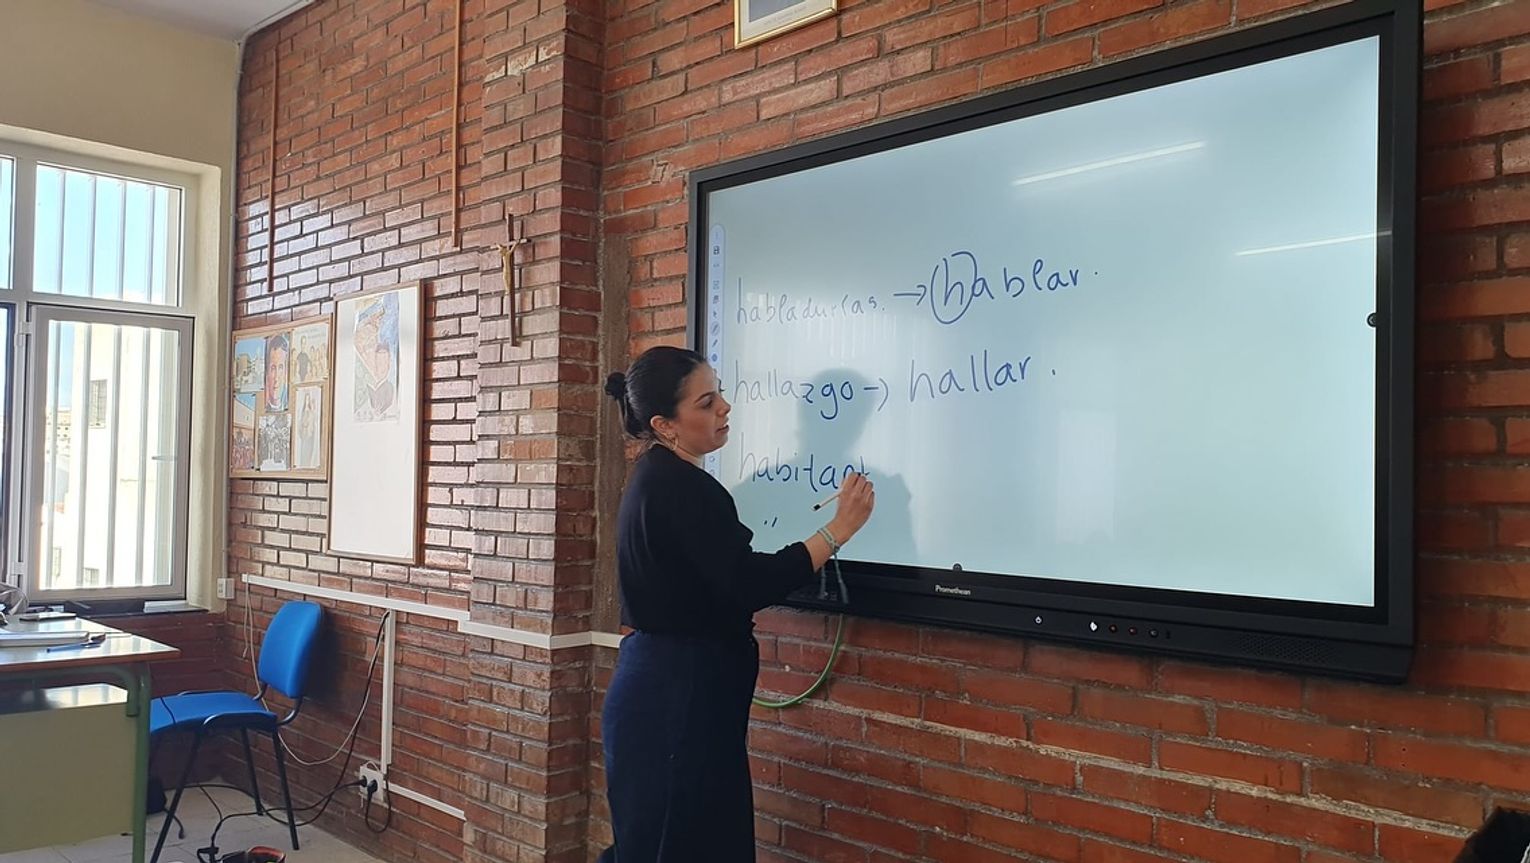 habladurías. → hablar.
hallazgo → hallar.
habitant
Promethean